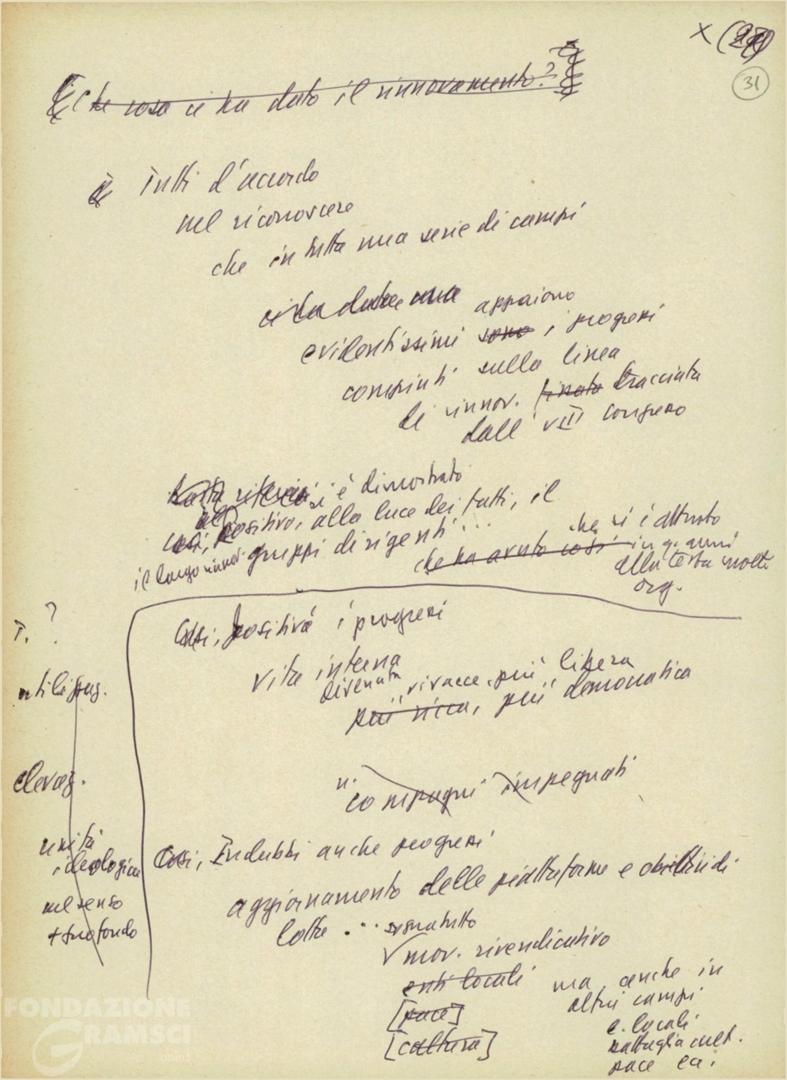 X (29)
31
Che cosa ci ha dato il rinnovamento?
Tutti d'accordo
nel riconoscere
che in tutta una serie di campi
appaiono
evidentissimi sono i progressi
compiuti sulla linea
di rinnov. tracciata
dall' VIII congresso
si è dimostrato
Così, positivo, alla luce dei fatti, il
gruppi dirigenti ...
che ha avuto così che si è attuato
in q. anni
alla testa molte
org.
Così, positivi i progressi
vita interna
divenuta vivace, più libera
più ricca, più democratica
compagni impegnati
Così, Indubbi anche progressi
aggiornamento delle piattaforme e obiettivi di
lotta ... sopratutto
mov. rivendicativo
enti locali
[pace]
[cultura]
ma anche in
altri campi
e. locali
battaglia cult.
pace ecc.
T. ?
elevaz.
unità
ideologica
nel senso
+ profondo
FONDAZIONE
GRAMSCI